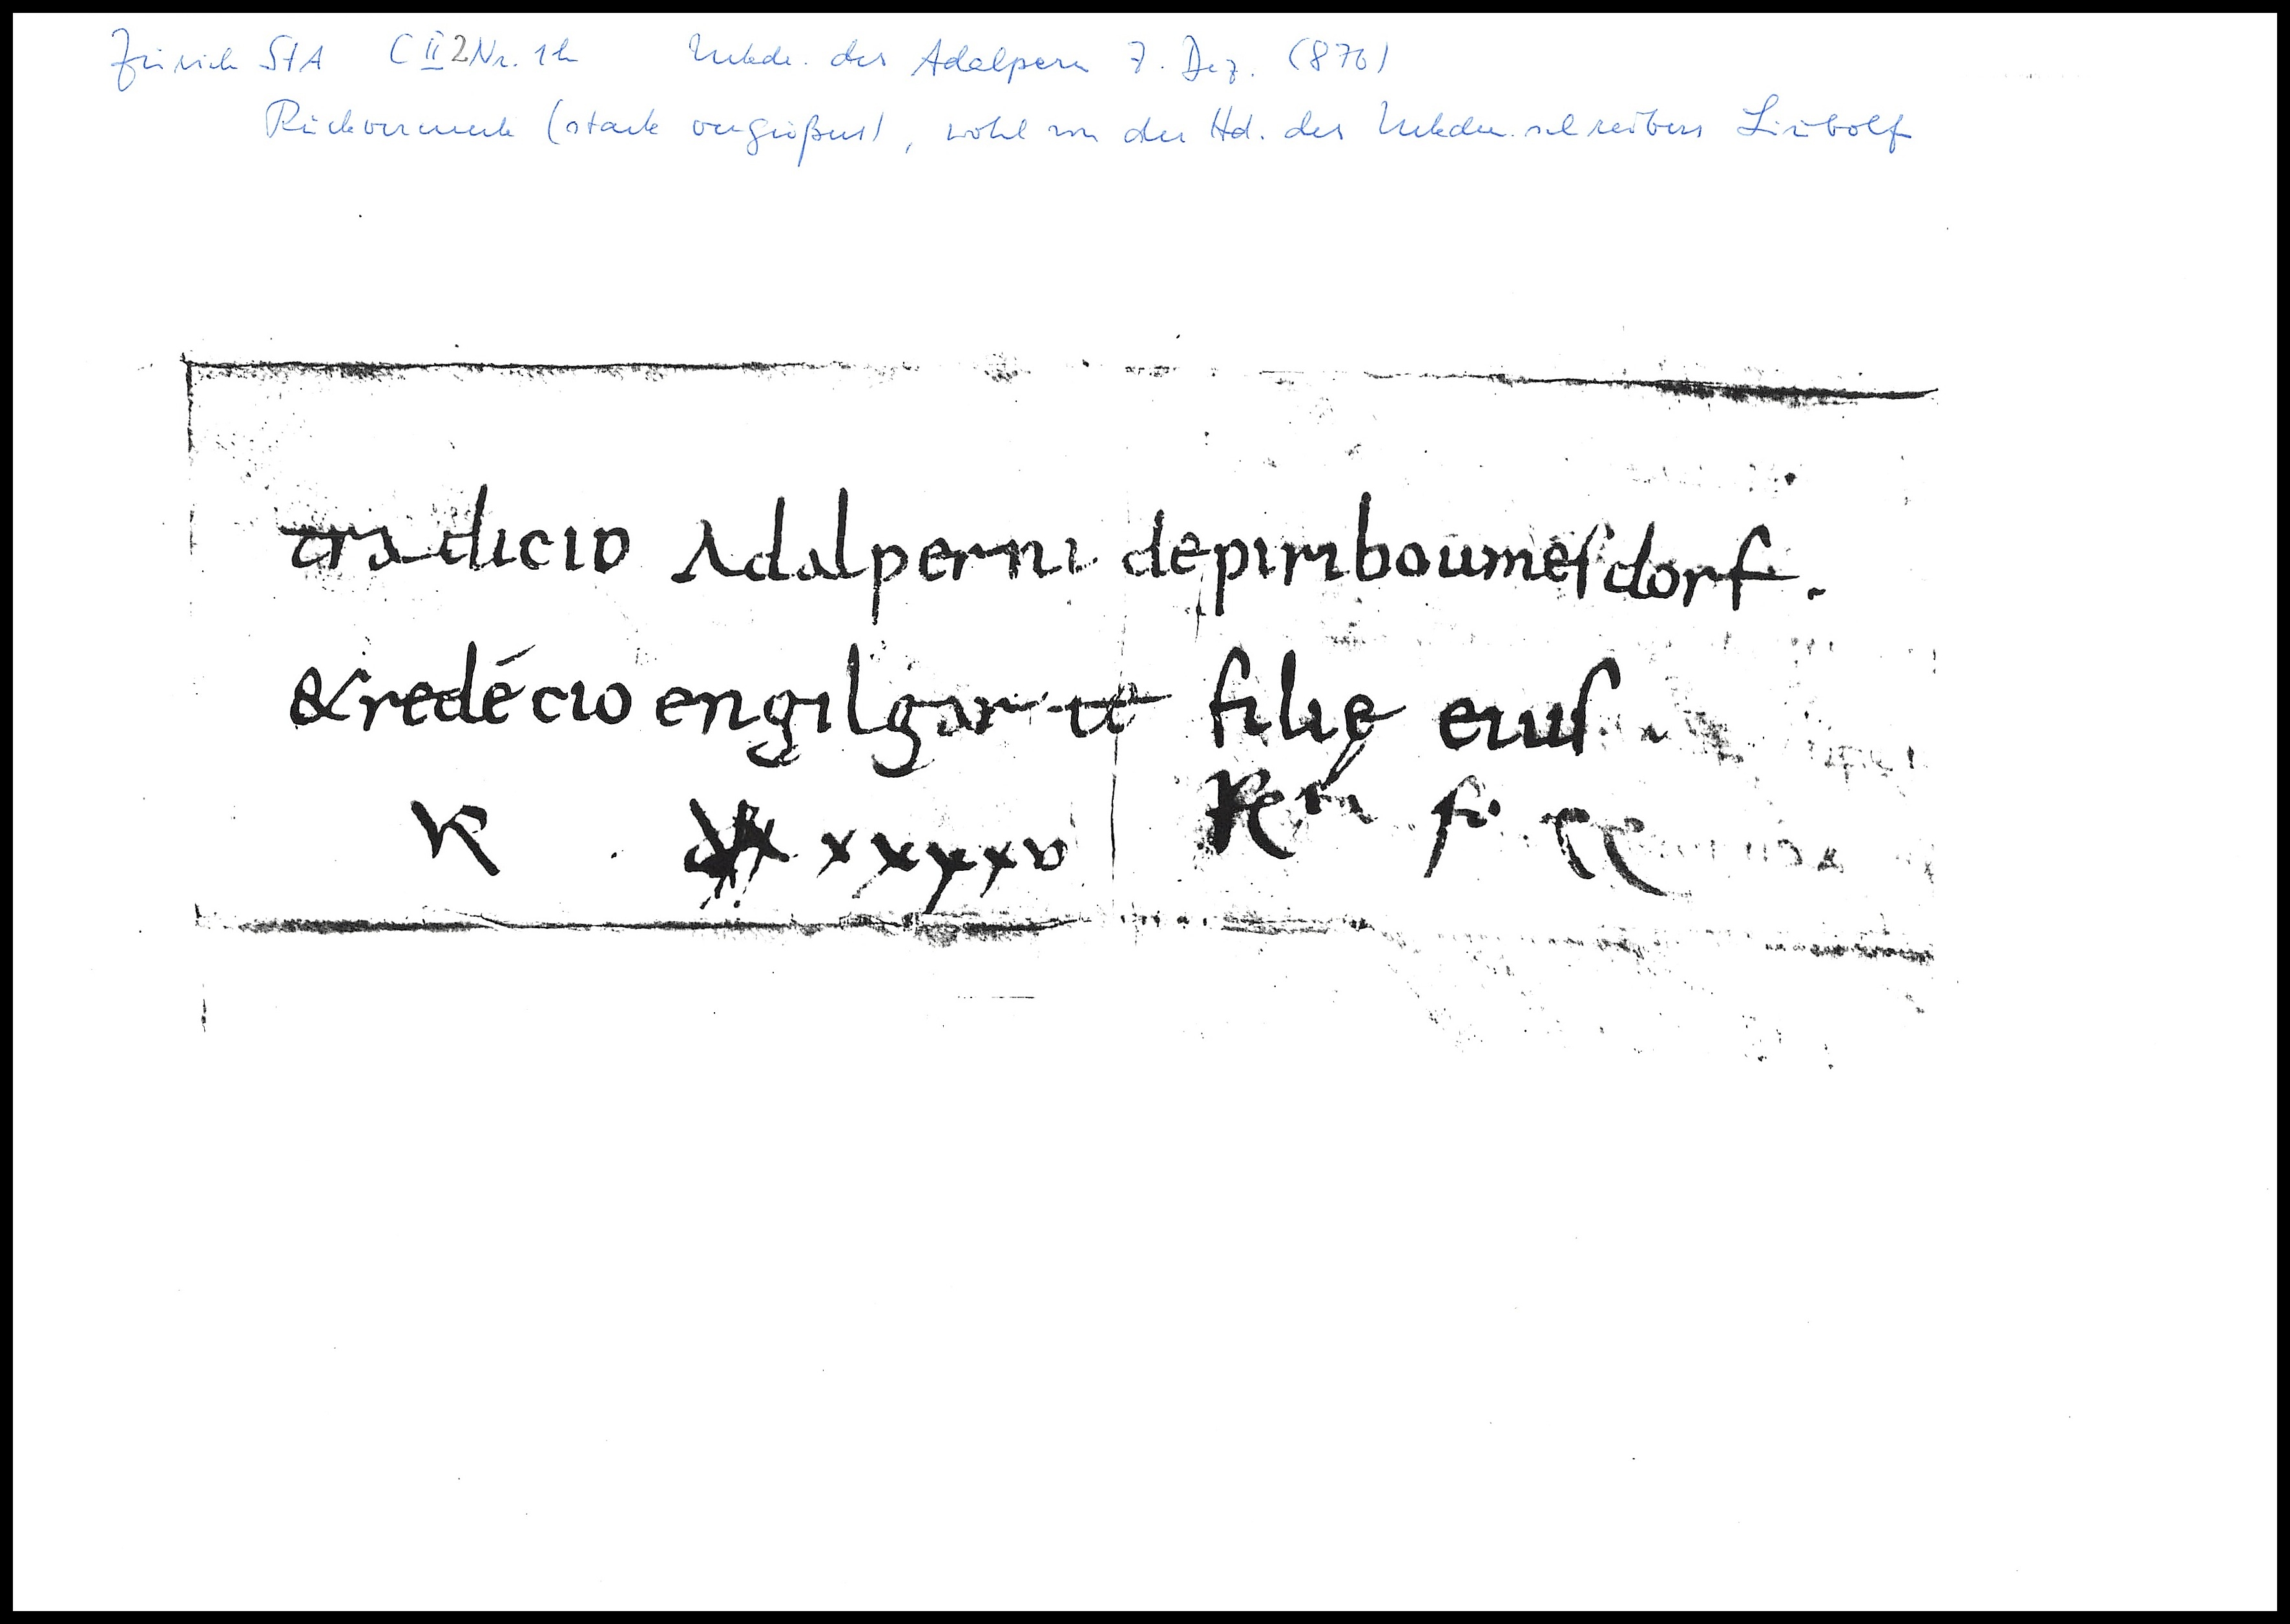 Zürich StA C II 2 Nr. 1h Urkde. des Adalpern 7. Dez. (876)
Rückvermerk (stark vergrößert), wohl von der Hd. des Urkden.schreibers Liutolf
tradicio Adalperni depirihboumesdorf.
&redécio engilgar filie eius
K xxxxv